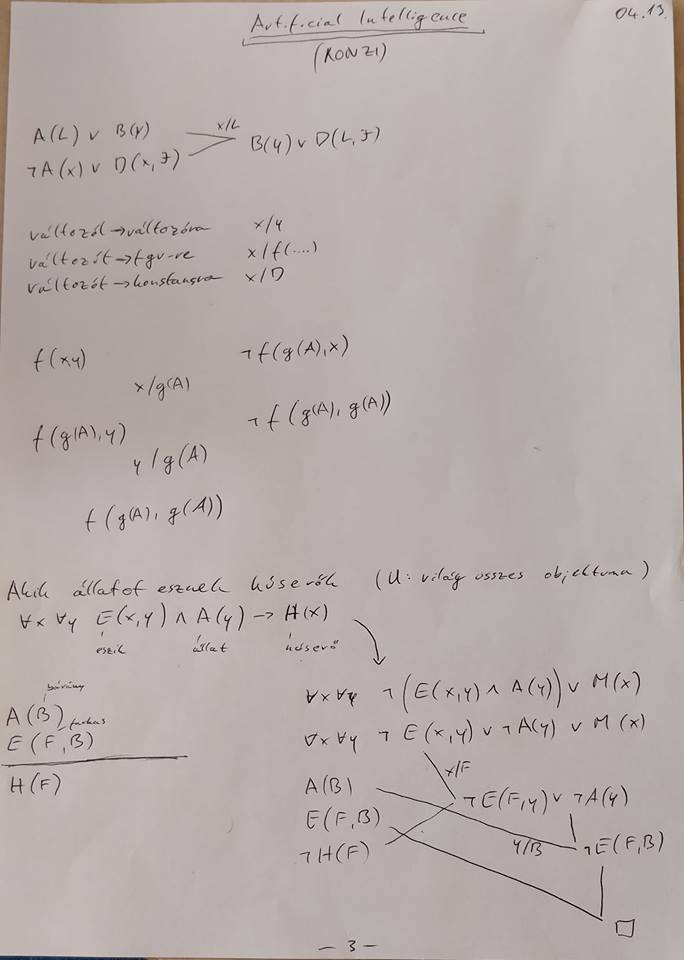 Artificial Intelligence
04.13.
(KONZI)
A(L) ∨ B(y)
x/L
B(y) ∨ D(L, J)
¬A(x) ∨ D(x, J)
változót → változóra x/y
változót → fgv-re x/f(....)
változót → konstansra x/D
f(x,y) ¬f(g(A),x)
x/g(A)
f(g(A),y) ¬f(g(A), g(A))
y/g(A)
f(g(A), g(A))
Akik állatot esznek húsevők (U: világ összes objektuma)
∀x ∀y E(x,y) ∧ A(y) → H(x)
eszik állat húsevő
bárány
A(B)
farkas
E(F,B)
H(F)
∀x∀y ¬(E(x,y) ∧ A(y)) ∨ M(x)
∀x∀y ¬E(x,y) ∨ ¬A(y) ∨ M(x)
x/F
A(B)
¬E(F,y) ∨ ¬A(y)
E(F,B)
¬H(F)
y/B
¬E(F,B)
□
- 3 -